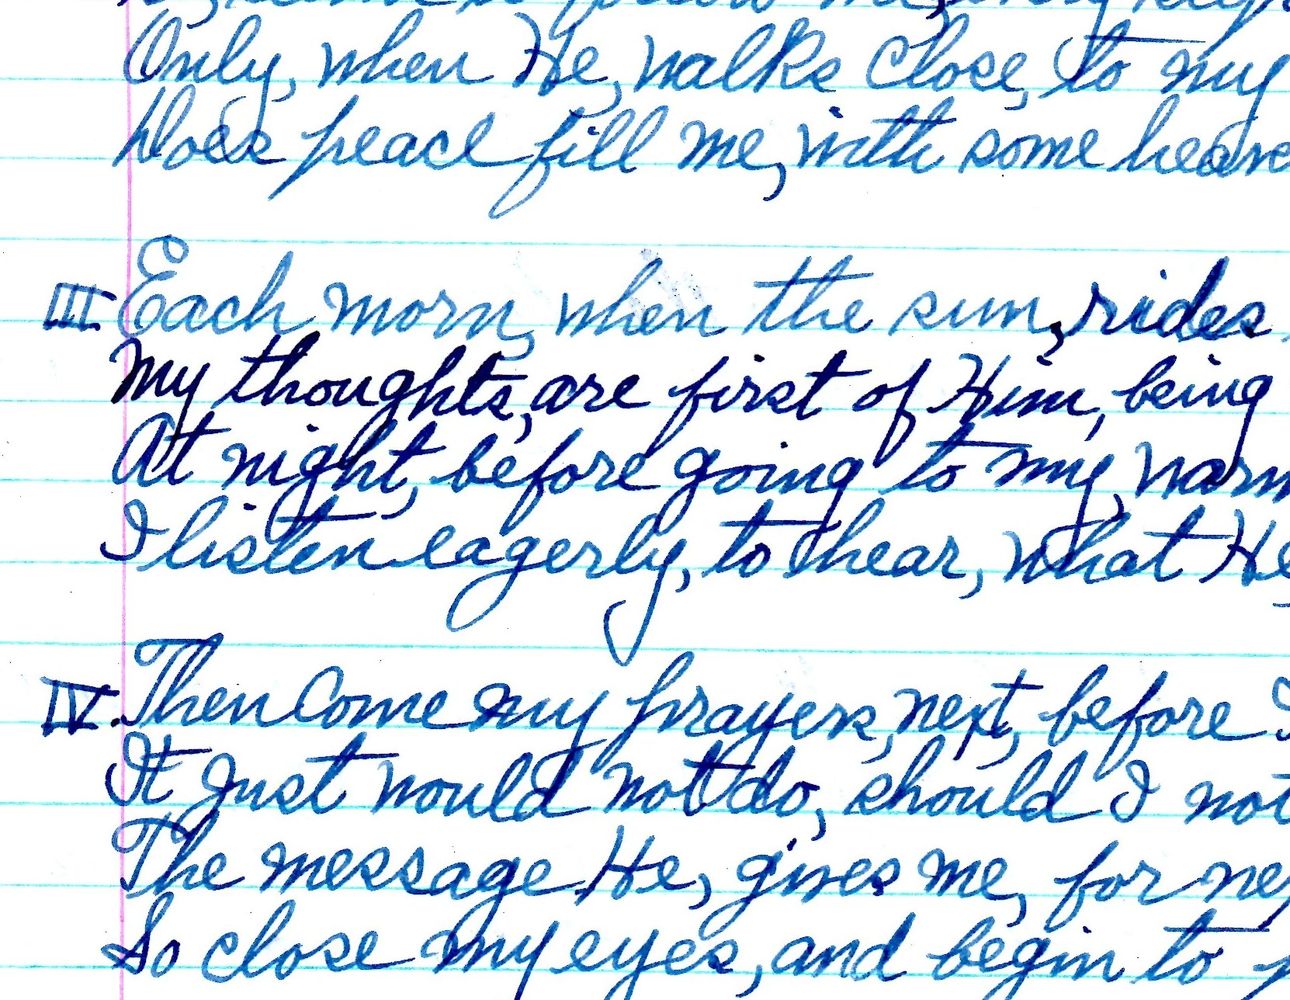 Only, when He, walks close, to my
Does peace fill me, with some
III. Each morn, when the sun, rides
My thoughts, are first of Him, being
At night, before going to my, warm
I listen eagerly, to hear, what He
IV. Then come my prayers, next, before I
It just would not do, should I not
The message He, gives me, for
So close my eyes, and begin to